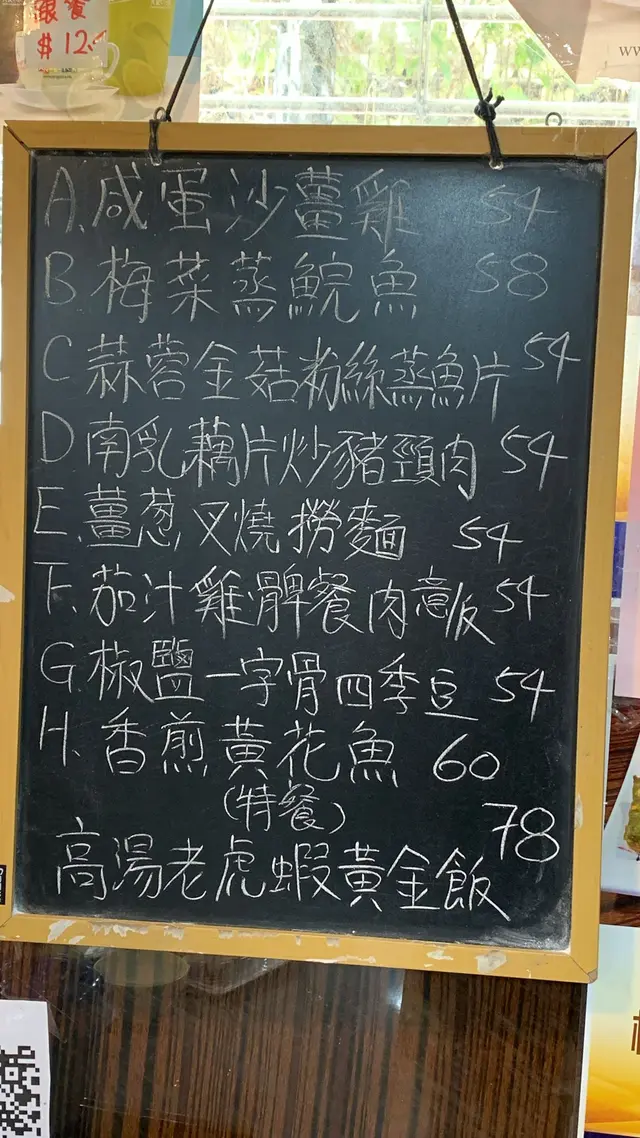 跟餐
$12
www
A.咸蛋沙薑雞 54
B 梅菜蒸鯇魚 58
C 蒜蓉金菇粉絲蒸魚片 54
D 南乳藕片炒豬頸肉 54
E.薑葱叉燒撈麵 54
F.茄汁雞髀餐肉意飯 54
G.椒鹽一字骨四季豆 54
H.香煎黃花魚 60
(特餐)
高湯老虎蝦黃金飯 78